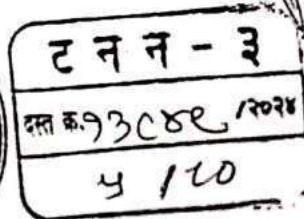 ट न न - ३
दस्त क्र.१३८४९ /२०२४
५ / २०